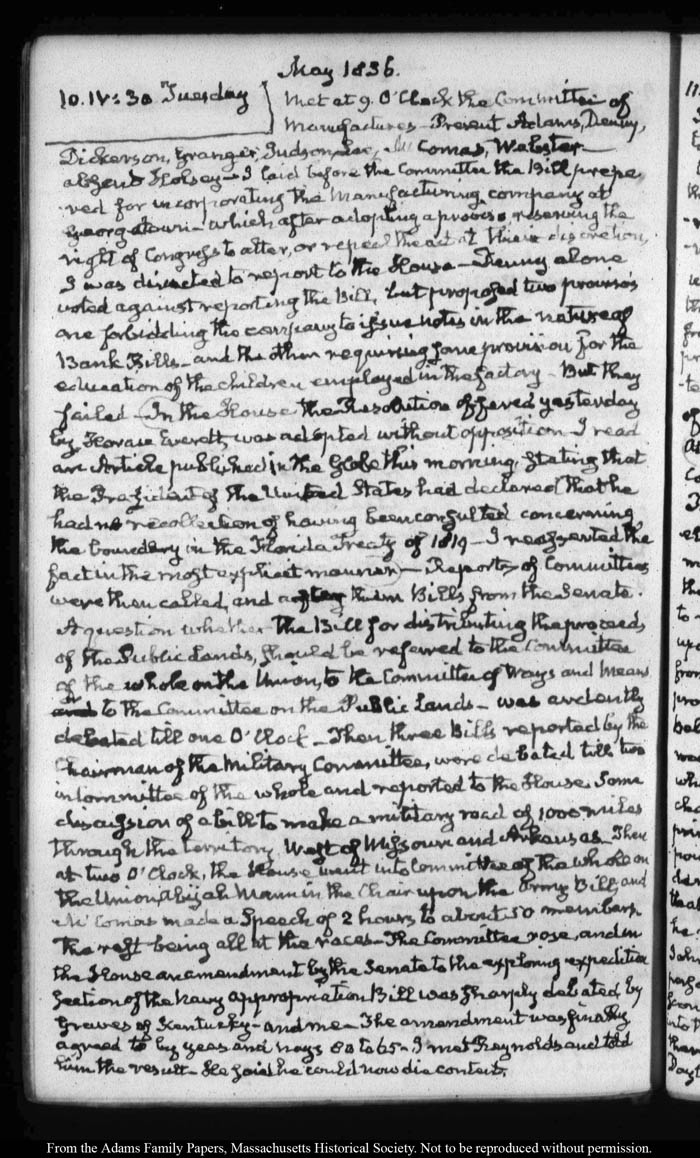 May 1836.
10. IV: 30 Tuesday
Met at 9. O'Clock the Committee of
Manufactures - Present Adams, Denny,
Dickerson, Granger, Judson, Lee, McComas, Webster
absent Halsey - I laid before the Committee the Bill prepa
red for incorporating the Manufacturing company at
Georgetown - which after adopting a proviso reserving the
right of Congress to alter, or repeal the act at their discretion,
I was directed to report to the House - Denny alone
voted against reporting the Bill, but proposed two proviso's
one forbidding the company to issue notes in the nature of
Bank Bills - and the other requiring some provision for the
education of the children employed in the factory - But they
failed - In the House the Resolution offered yesterday
by Horace Everett, was adopted without opposition - I read
an Article published in the Globe this morning, stating that
the President of the United States had declared that he
had no recollection of having been consulted concerning
the boundary in the Florida Treaty of 1819 - I reasserted the
fact in the most explicit manner - Reports of Committees
were then called, and after them Bills from the Senate.
A question whether the Bill for distributing the proceeds
of the Public Lands, should be referred to the Committee
of the whole on the Union, to the Committee of Ways and Means
or to the Committee on the Public Lands - was ardently
debated till one O'Clock - Then three Bills reported by the
Chairman of the Military Committee, were debated till two
in Committee of the whole and reported to the House. Some
discussion of a bill to make a military road of 1000 miles
through the territory West of Missouri and Arkansas - Then
at two O'Clock, the House went into Committee of the whole on
the Union Abijah Mann in the Chair upon the Army Bill, and
McComas made a Speech of 2 hours to about 50 members
The rest being all at the races - The Committee rose, and in
the House an amendment by the Senate to the exploring expedition
section of the Navy appropriation Bill was sharply debated by
Graves of Kentucky - and me - The amendment was finally
agreed to by yeas and nays to 65 - I met Reynolds and told
him the result - He said he could now die content.
From the Adams Family Papers, Massachusetts Historical Society. Not to be reproduced without permission.